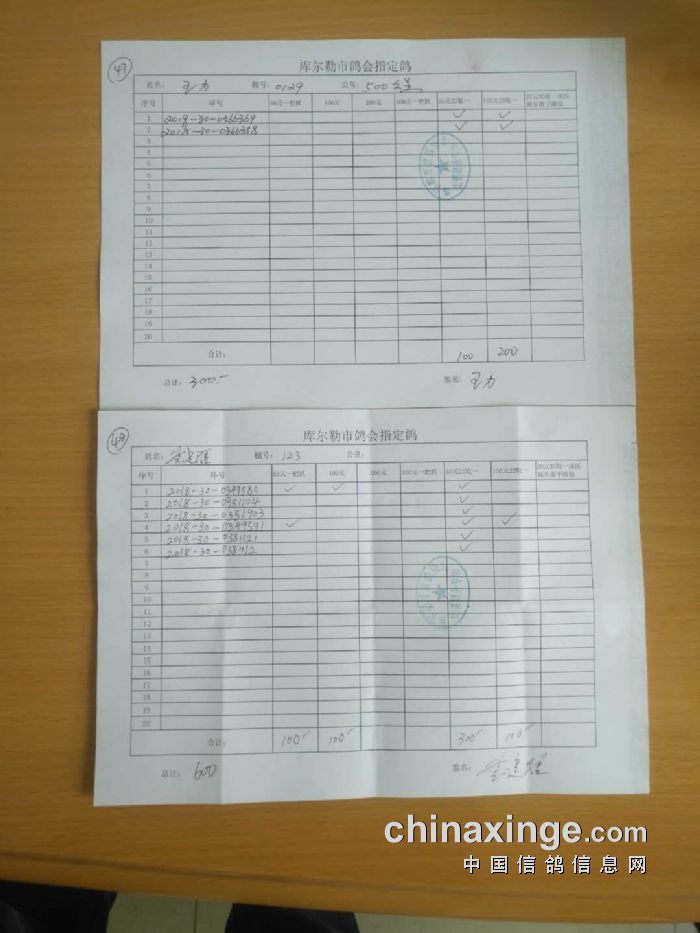 47
库尔勒市鸽会指定鸽
姓名: 王力 棚号: 0129 公里: 500公里
序号 环号 50元一把抓 100元 200元 50元22取一 100元22取一
1 2018-30-0366369 ✓ ✓
2 2018-30-0366358 ✓ ✓
3
4
5
6
7
8
9
10
11
12
13
14
15
16
17
18
19
20
合计: 100 200
总计: 300.- 签名: 王力
48
库尔勒市鸽会指定鸽
姓名: 棚号: 123 公里:
序号 环号 50元一把抓 100元 200元 50元22取一 100元22取一
1 2018-30-0349580 ✓ ✓ ✓
2 2018-30-0381104 ✓
3 2018-30-0351903 ✓
4 2018-30-0349591 ✓ ✓ ✓
5 2018-30-0381121 ✓
6 2018-30-0381112 ✓
7
8
9
10
11
12
13
14
15
16
17
18
19
20
合计: 100.- 100.- 300.- 100.-
总计: 600 签名:
chinaxinge.com
中国信鸽信息网